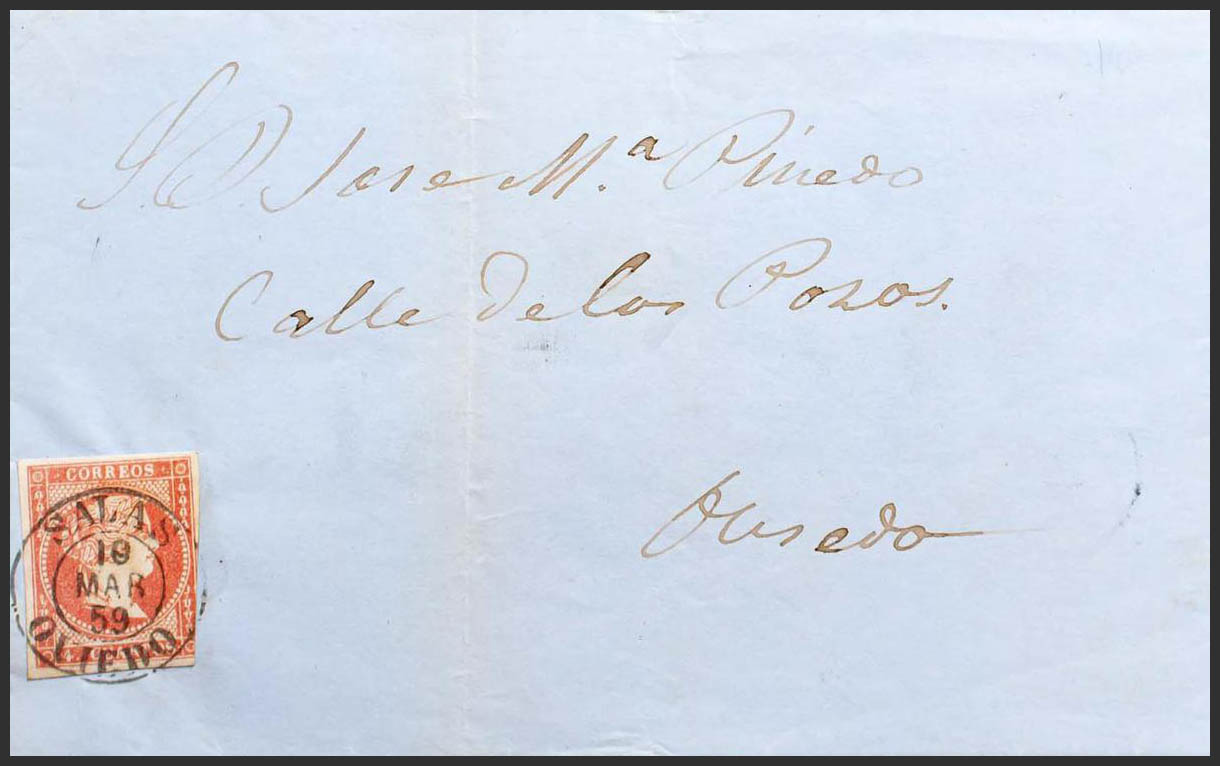 S. D. Jose M.ª Pinedo
Calle de los Pozos.
Oviedo
CORREOS
SALAS
10
MAR
59
OVIEDO